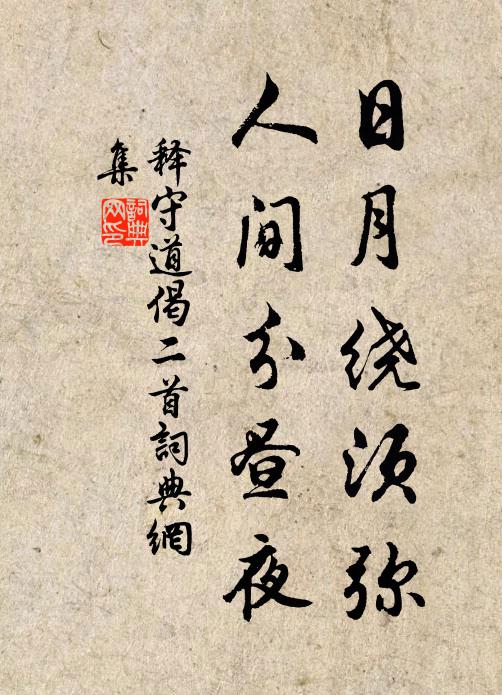 日月绕须弥
人间分昼夜
释守道偈二首詞典網
集
詞典网印